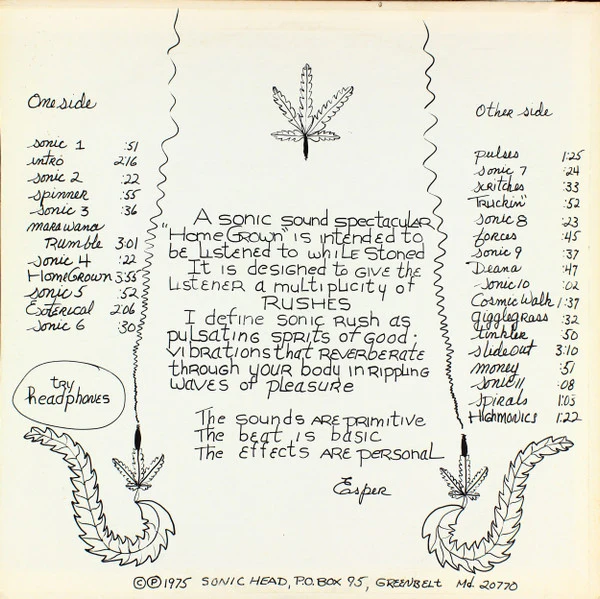 One side
sonic 1 :51
intro 2:16
sonic 2 :22
spinner :55
sonic 3 :36
marawana
Rumble 3:01
sonic 4 :22
HomeGrown 3:55
sonic 5 :52
Esoterical 2:06
sonic 6 :30
try
headphones
A sonic sound spectacular
"HomeGrown" is intended to
be Listened to while Stoned
It is designed to give the
Listener a multiplicity of
RUSHES
I define sonic rush as
pulsating sprits of good:
vibrations that REVERBERATE
through your body in rippling
waves of pleasure
The sounds are primitive
The beat is basic
The effects are personal
Esper
Other side
pulses 1:25
sonic 7 :24
scritches :33
Truckin' :52
sonic 8 :23
forces :45
sonic 9 :37
Deana :47
sonic 10 :02
Cosmic Walk 1:37
gigglegrass :32
tinkler :50
slideout 3:10
money :51
sonic 11 :08
spirals 1:03
Highmonics 1:22
©℗1975 SONIC HEAD, P.O. BOX 95, GREENBELT Md. 20770